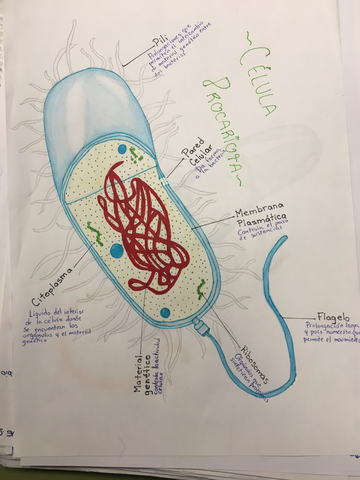 ~CÉLULA
PROCARIOTA~
Pili
Prolongaciones que
permiten el intercambio
de material genético entre
las bacterias
Pared
Celular
Da forma
a la bacteria
Membrana
Plasmática
Controla el paso
de sustancias
Citoplasma
Líquido del interior
de la célula donde
se encuentran los
orgánulos y el material
genético
Flagelo
Prolongación larga
y poco numerosa que
permite el movimiento
Ribosomas
Orgánulo que
sintetizan
Material
genético
controla
celular